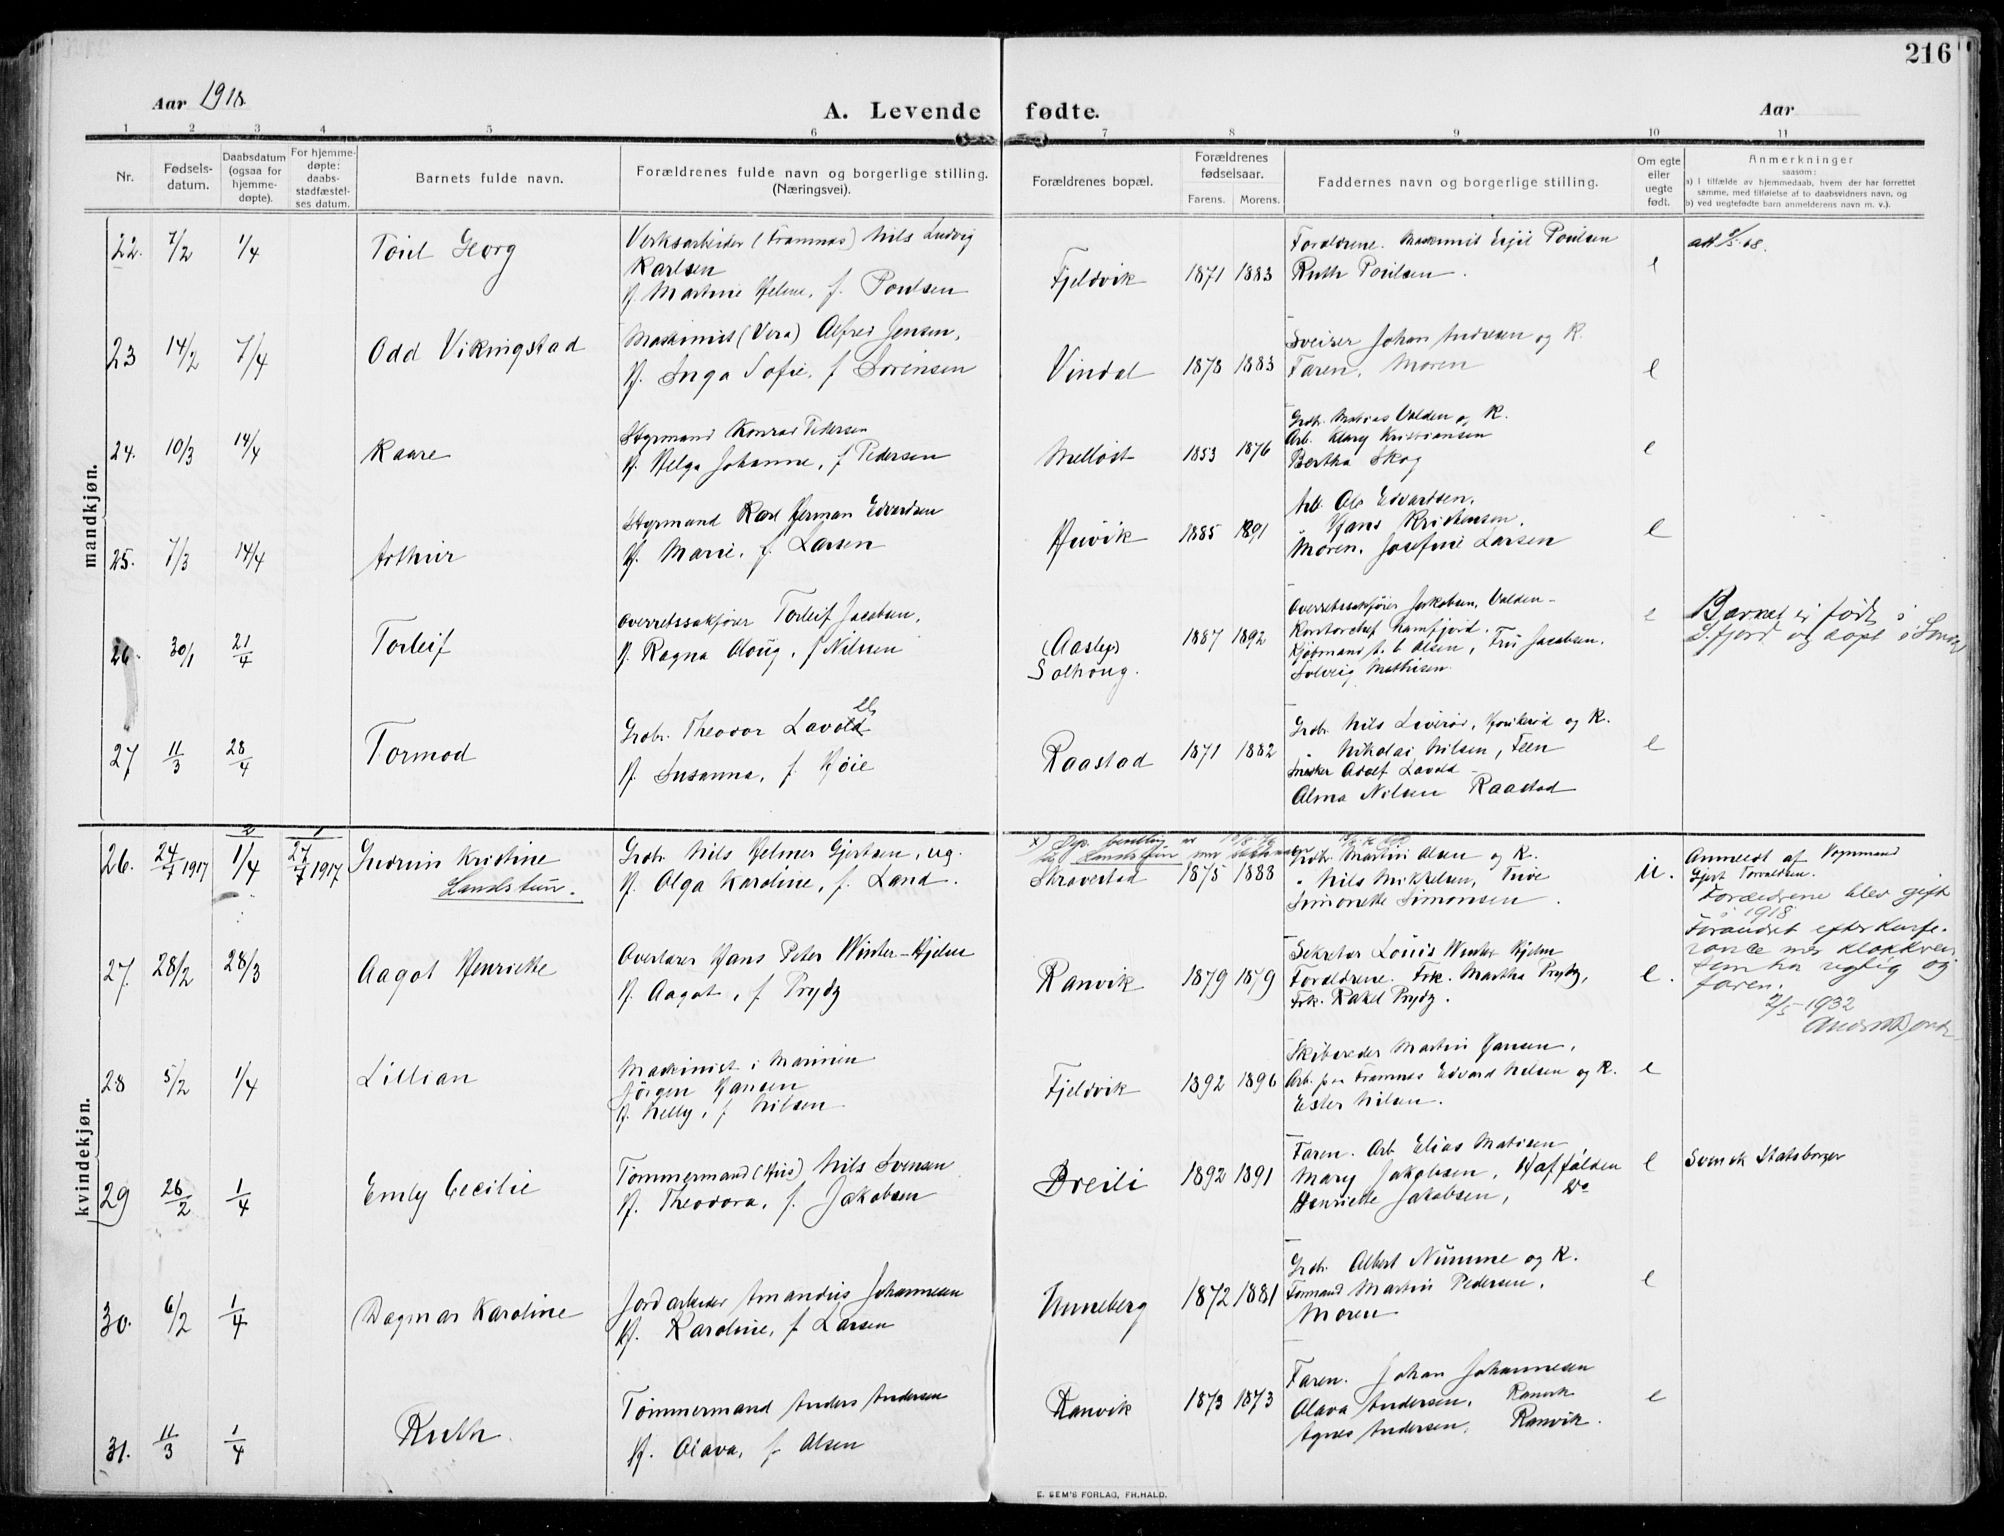 216
Aar 1918
A. Levende fødte.
Aar
1 2 3 4 5 6 7 8 9 10 11
Nr.
Fødsels-
datum.
Daabsdatum
(ogsaa for
hjemme-
døpte).
For hjemme-
døpte:
daabs-
stadfæstel-
ses datum.
Barnets fulde navn.
Forældrenes fulde navn og borgerlige stilling.
(Næringsvei).
Forældrenes bopæl.
Forældrenes
fødselsaar.
Farens. Morens.
Faddernes navn og borgerlige stilling.
Om egte
eller
uegte
født.
Anmerkninger
saasom:
a) i tilfælde av hjemmedaab, hvem der har forrettet
samme, med tilføielse af to daabsvidners navn, og
b) ved uegtefødte barn anmelderens navn m. v.).
mandkjøn.
22. 7/2 1/4 Georg
Verksarbeider (Framnæs) Nils Ludvig
Karlsen
H. Martine Helene, f. Poulsen
Fjeldvik 1871 1883
Forældrene. Maskinist Poulsen
Ruth Poulsen.
e
23 14/2 7/4 Odd Vikingstad
Maskinist (Vera) Alfred Jensen,
H. Inga Sofie, f Sörensen
Vindal 1878 1883
Sveiser Johan Andresen og K.
Faren, Moren
e
24. 10/3 14/4 Kaare
Styrmand Konrad Pedersen
H. Helga Johanne, f Pedersen
Melløst 1853 1876
Grdbr. Mathias Valden og K.
Arb. Kristiansen
Bertha Skog
e
25. 7/3 14/4 Arthur
Styrmand Karl Herman Edvardsen
H. Marie, f. Larsen
Huvik 1885 1891
Arb. Ole Edvardsen,
" Hans Kristensen.
Moren. Josefine Larsen
e
26. 30/1 21/4 Torleif
Overretssakfører Torleif Jacobsen,
H. Ragna Aloug, f Nilssen
(Aasly)
Solhoug. 1887 1892
Overretssakfører Jakobsen, Valden-
Kontorchef Kamfjord.
Kjøbmand Olsen, Fru Jacobsen.
Solveig Mathisen.
e
Barnet er født i
S.fjord og døpt i
27 11/3 28/4 Tormod
Grdbr. Theodor Lavold
H. Susanna, f. Høie
Raastad 1871 1882
Grdbr. Nils Liverød, og K.
" Nikolai Nilsen, Feen
Snekker Adolf Lavold-
Alma Nilsen Raastad
e
kvindekjøn.
26. 24/7 1917 1/4 27/7 1917 Gudrun Kristine
Landstun.
Grdbr. Nils Helmer Gjertsen, ug.
H. Olga Karoline, f. Land.
Skravestad 1875 1888
Grdbr. Martin Olsen og K.
" Nils Mikkelsen,
Simonette Simonsen.
u.
Anmeldt af Vognmand
Gjert Torvaldsen.
Forældrene blev gift
i 1918
Forandret efter konfe-
rance med klokkeren
som har vigtig og
faren.
2/5-1932
27. 28/2 28/3 Aagot Henriette
Overlærer Hans Peter Winter-Hjelm
H. Aagot, f Prydz
Ranvik 1879 1879
Sekretær Louis Winter Hjelm
Forældrene. Frk. Martha Prydz,
Frk. Rakel Prydz.
e.
28 5/2 1/4 Lillian
Maskinist i Marinen
Jörgen Hansen
H. Nelly, f Nilsen
Fjeldvik 1892 1896
Skibsreder Martin Hansen,
Arb. paa Framnæs Edvard Nilsen og K.
Ester Nilsen.
e
29 26/2 1/4 Emly Cecilie
Tömmermand (Hus) Nils Svensen
H. Theodora, f. Jakobsen
Breili 1892 1891
Faren. Arb Elias Matisen
Mary Jakobsen,
Henriette Jakobsen, Do
e
Svensk Statsborger
30. 6/2 1/4 Dagmar Karoline
Jordarbeider Amandus Johannesen
H. Karoline, f Larsen
Unneberg 1872 1881
Grdbr. Albert Numme og K.
Formand Martin Pedersen,
Moren
e
31. 11/3 1/4 Ruth.
Tömmermand Anders Andersen
H. Olava, f Olsen
Ranvik 1873 1873
Faren. Johan Johannesen
Olava Andersen, Ranvik
Agnes Andersen, Ranvik.
e
E. SEM'S FORLAG, FR.HALD.